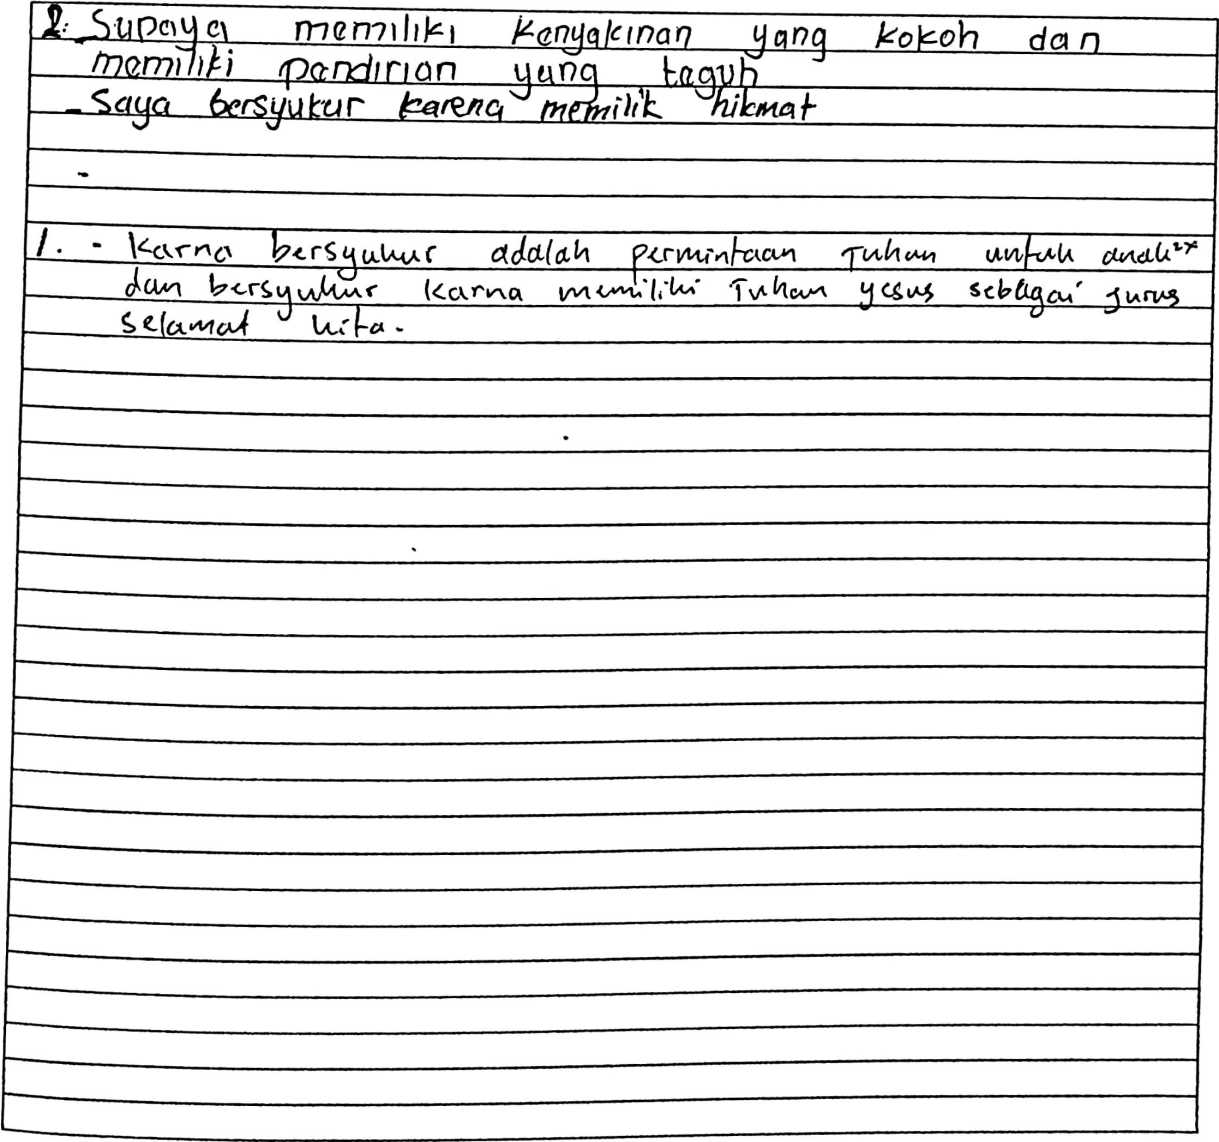 2. - Supaya memiliki Kenyakinan yang kokoh dan
memiliki pendirian yang teguh
- Saya bersyukur karena memilik hikmat
-
1. - Karna bersyukur adalah permintaan Tuhan untuk anak²ⁿ
dan bersyukur Karna memiliki Tuhan yesus sebagai jurus
selamat kita.